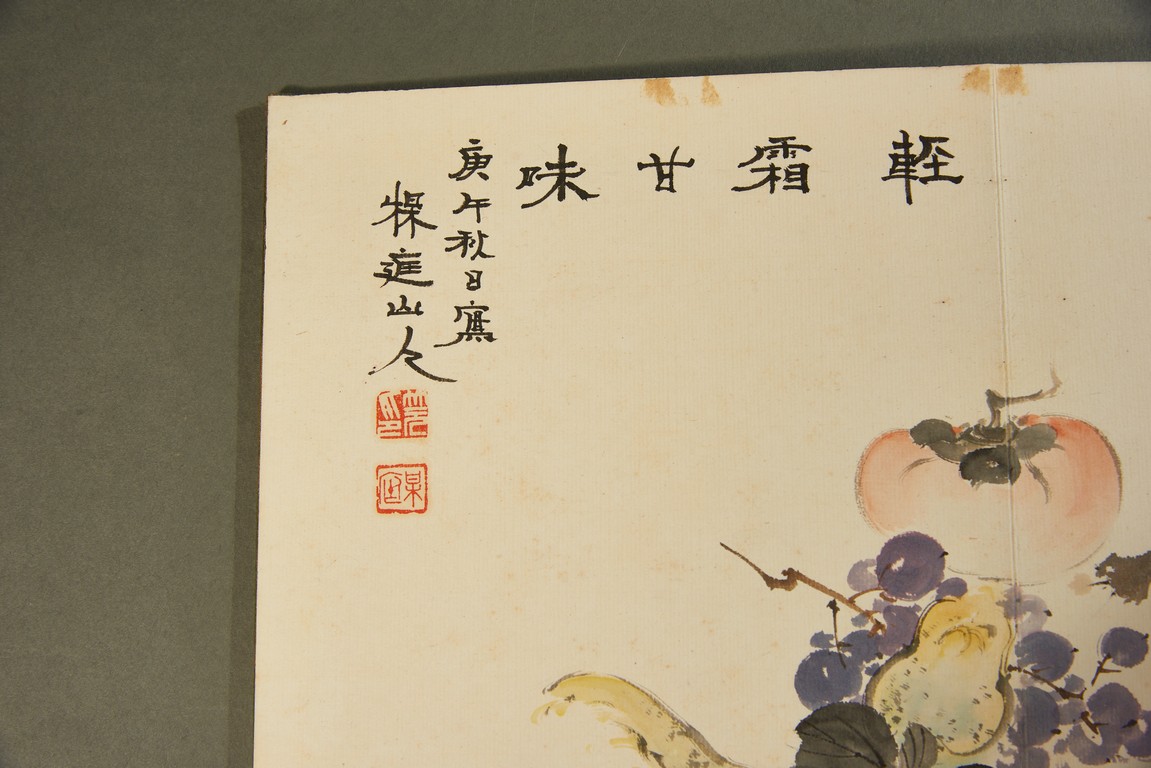 輕霜甘味
庚午秋日寫
楳庭山人